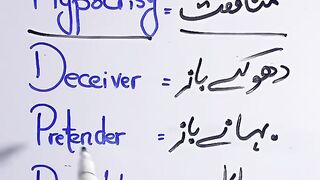 Hypocrisy = منافقت
Deceiver = دھوکے باز
Pretender = بہانے باز